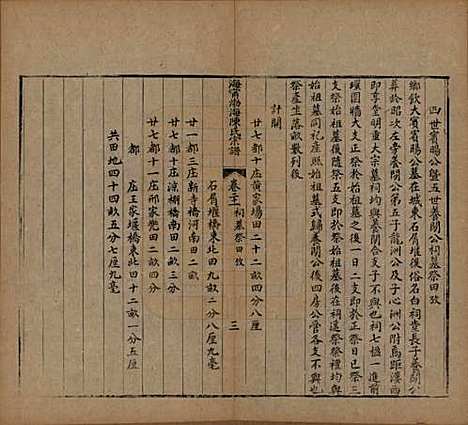 四世賓暘公暨五世養閒公祠墓祭田攷
鄉飲大賓暘公墓在城東石屑堰後俗名白祠堂長子養閒公
葬於昭次左旁養閒公第五子龍洲公及子心洲公附焉距漊西
即享堂明重大宗墓祠均與養閒合支子不與也祠七楹一進前
環圍牆大支正祭於始祖墓之後一日二支即於正祭日已祭三
支祭始祖墓後隨祭五支即於祭始祖墓後在祠遙祭祭禮均與
始祖墓同祀產照始祖墓式歸養閒公後四房公管各支不與也
祭產坐落畝數列後
計開
廿七都十庄黃家場田二十二畝四分八厘
海甯渤海陳氏宗譜 卷二十一 祠墓祭田攷 三
石屑堰橋東北田九畝二分八厘九毫
廿一都三庄新寺橋河南田二畝
廿七都十庄涼棚橋南田四畝三分
廿七都十一庄邢家兜田二畝四分
都 庄王家堰橋東北四十二畝一分五厘
共田地四十四畝五分七厘九毫